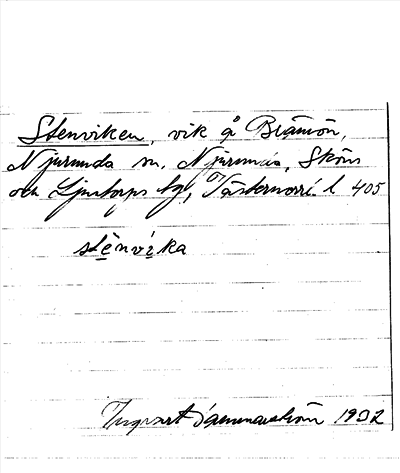 Stenviken, vik å Brämön,
Njurunda sn. Njurunda, Sköns
och Ljustorps tg, Västernorrl. l 405
stènvìka
Ingvart Sammarström 1932